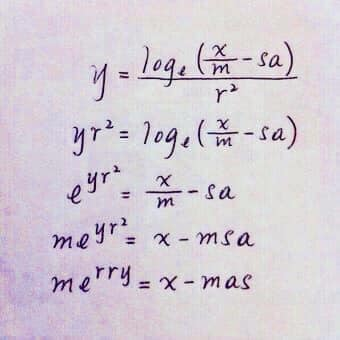 y = logₑ(x/m - sa)/r²
yr² = logₑ(x/m - sa)
e^yr² = x/m - sa
me^yr² = x - msa
me^rry = x - mas